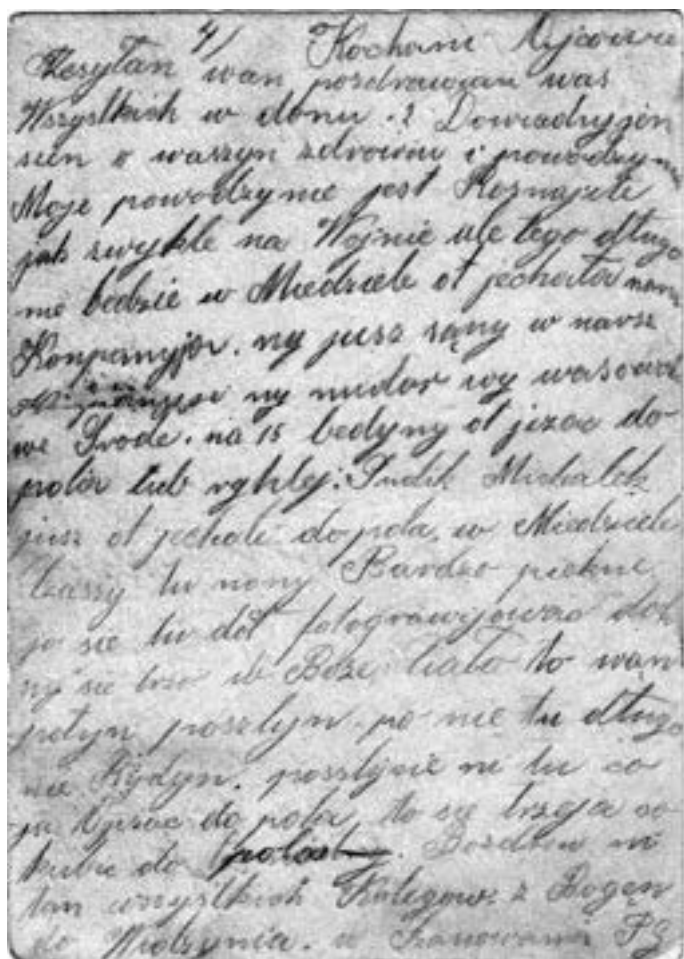 4/ Kochani Ojcowie
Zesyłan wan pozdrowian was
Wszystkich w domu. ż Dowiadryjen
sien o waszyn zdrowiu i powodzynie
Moje powodzynie jest Roznajte
jak zwykle na Wojnie ale tego długo
nie bedzie w Niedziele ot jechała nam
Konpanyja. my jusz sąmy w marsz
my mudor wy wasowal
we Srode. na 15 bedymy ot jizac do
pola lub ryhlej: Michalek
jusz ot jechali do pola. w Niedziele
Czassy tu momy Bardzo piekne
jo sie tu doł fotograwijowac
my sie w Boże ciało to wąm
potym poszlyn. po nie tu długo
nie Bydyn. poszlijcie mi tu co
pola to se trzeja co
kubic do polosty. Pozdrow mi
tam wszystkich Kolegow. z Bogen
do Widzynia. w Szanowaniu PG